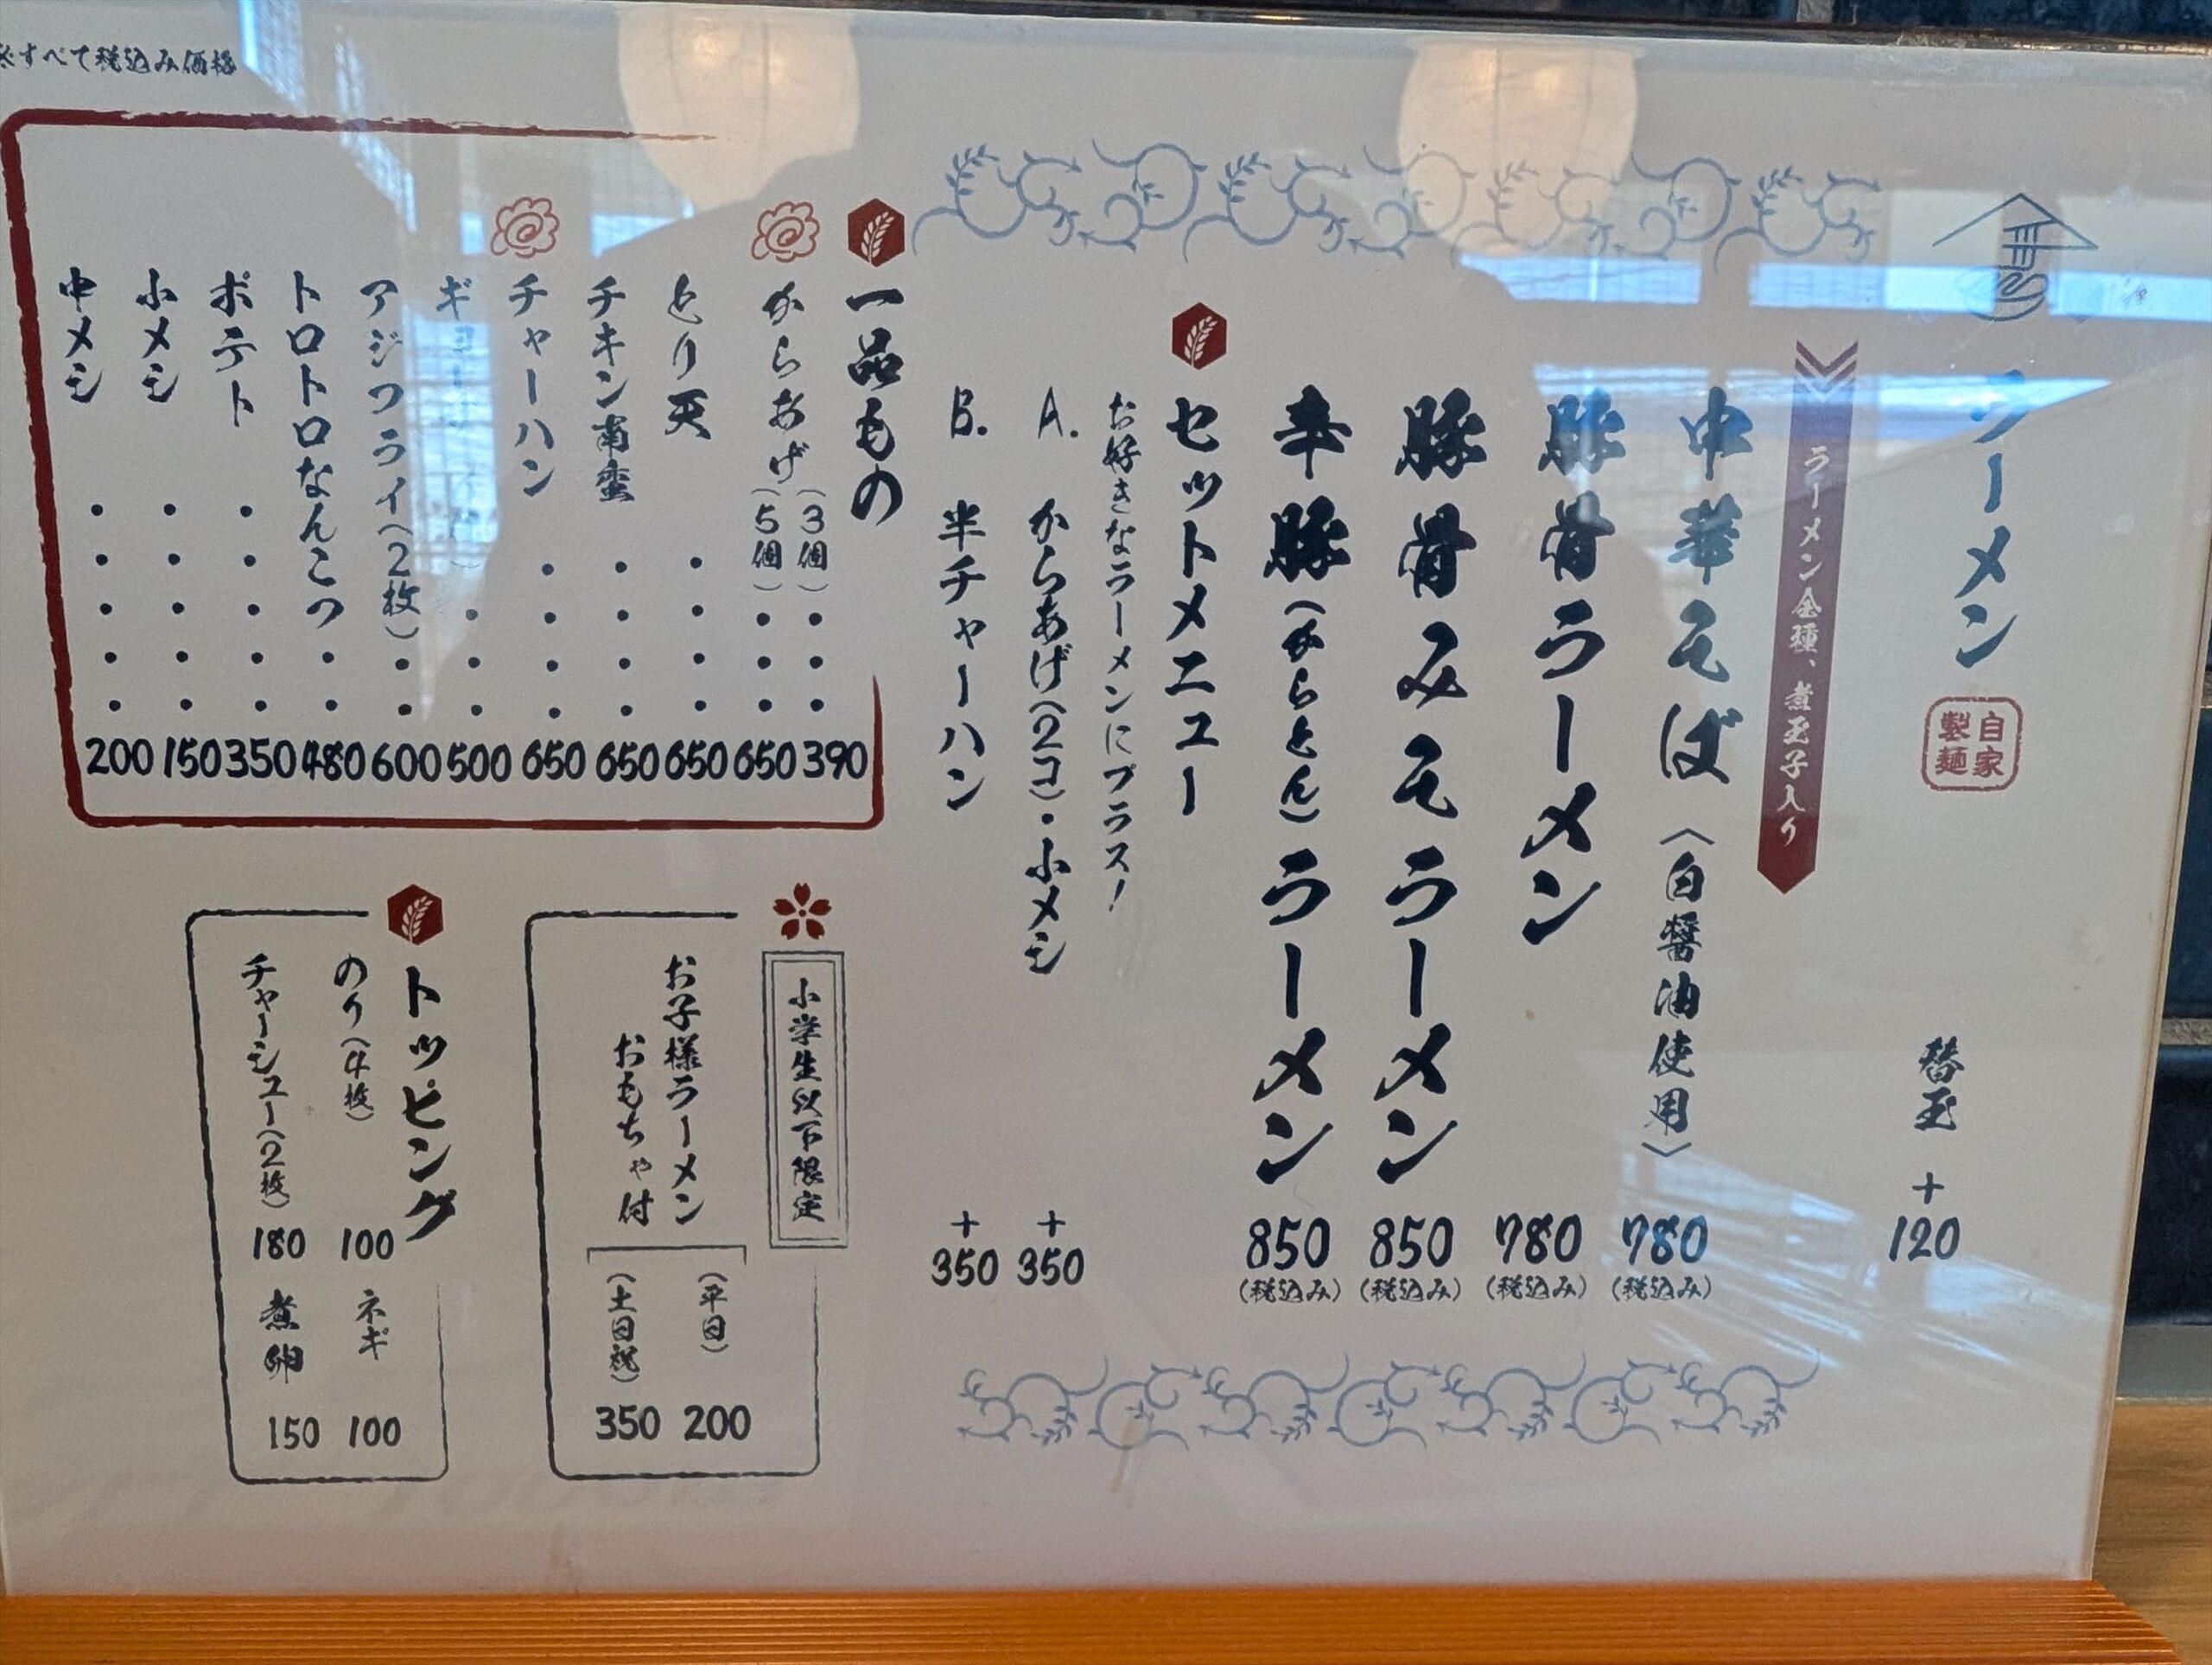 ※すべて税込み価格
ラーメン
自家
製麺
替玉 +120
ラーメン全種、煮玉子入り
中華そば〈白醤油使用〉 780
(税込み)
豚骨ラーメン 780
(税込み)
豚骨みそラーメン 850
(税込み)
辛豚(からとん)ラーメン 850
(税込み)
セットメニュー
お好きなラーメンにプラス!
A. からあげ(2コ)・小メシ +350
B. 半チャーハン +350
一品もの
からあげ(3個)・・・390
(5個)・・・650
とり天・・・・650
チキン南蛮・・・・650
チャーハン・・・・650
ギョー・・・500
アジフライ(2枚)・・600
トロトロなんこつ・・480
ポテト・・・・・350
小メシ・・・・・150
中メシ・・・・・200
小学生以下限定
お子様ラーメン
おもちゃ付
(平日) 200
(土日祝) 350
トッピング
のり(4枚) 100
ネギ 100
チャーシュー(2枚) 180
煮卵 150